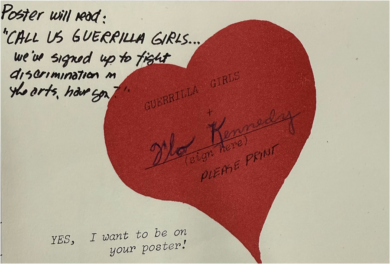 Poster will read:
"CALL US GUERRILLA GIRLS...
we've signed up to fight
discrimination in
the arts, have you?"
GUERRILLA GIRLS
+
Flo Kennedy
(sign here)
PLEASE PRINT
YES, I want to be on
your poster!